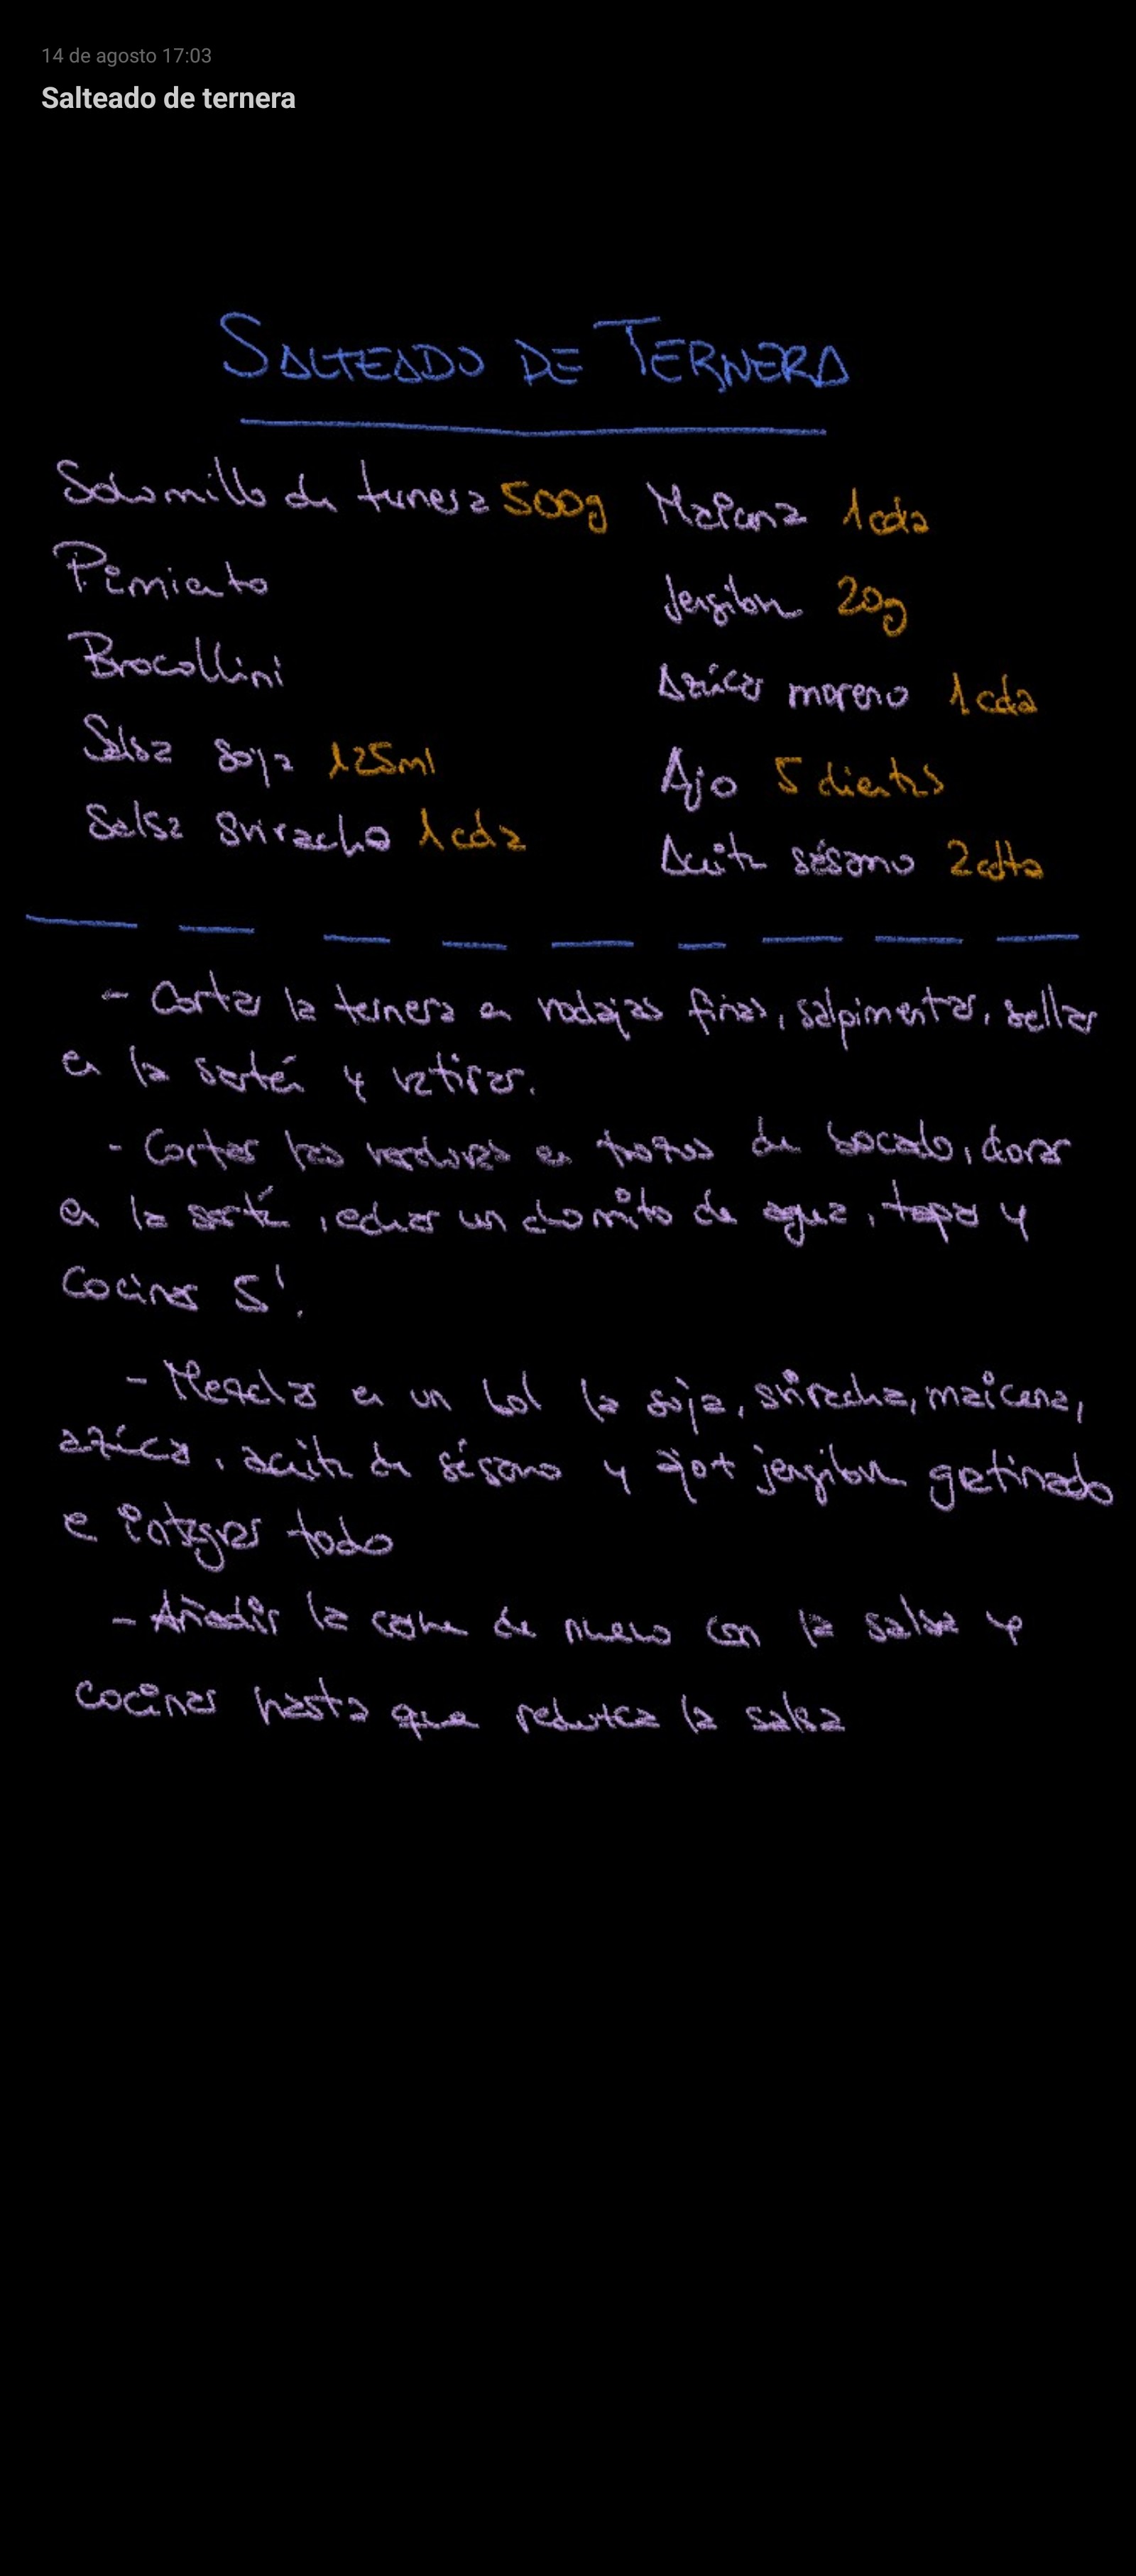 14 de agosto 17:03
Salteado de ternera
SALTEADO DE TERNERA
Solomillo de ternera 500g
Pimiento
Brocollini
Salsa soja 125ml
Salsa Sriracha 1 cda
Maicena 1 cda
Jengibre 20g
Azúcar moreno 1 cda
Ajo 5 dientes
Aceite sésamo 2 cdta
- Cortar la ternera en rodajas finas, salpimentar, sellar
en la sartén y retirar.
- Cortar las verduras en trozos de bocado, dorar
en la sartén, echar un chorrito de agua, tapar y
cocinar 5'.
- Mezclar en un bol la soja, sriracha, maicena,
azúcar, aceite de sésamo y ajo + jengibre gratinado
e integrar todo
- Añadir la carne de nuevo con la salsa y
cocinar hasta que reduzca la salsa